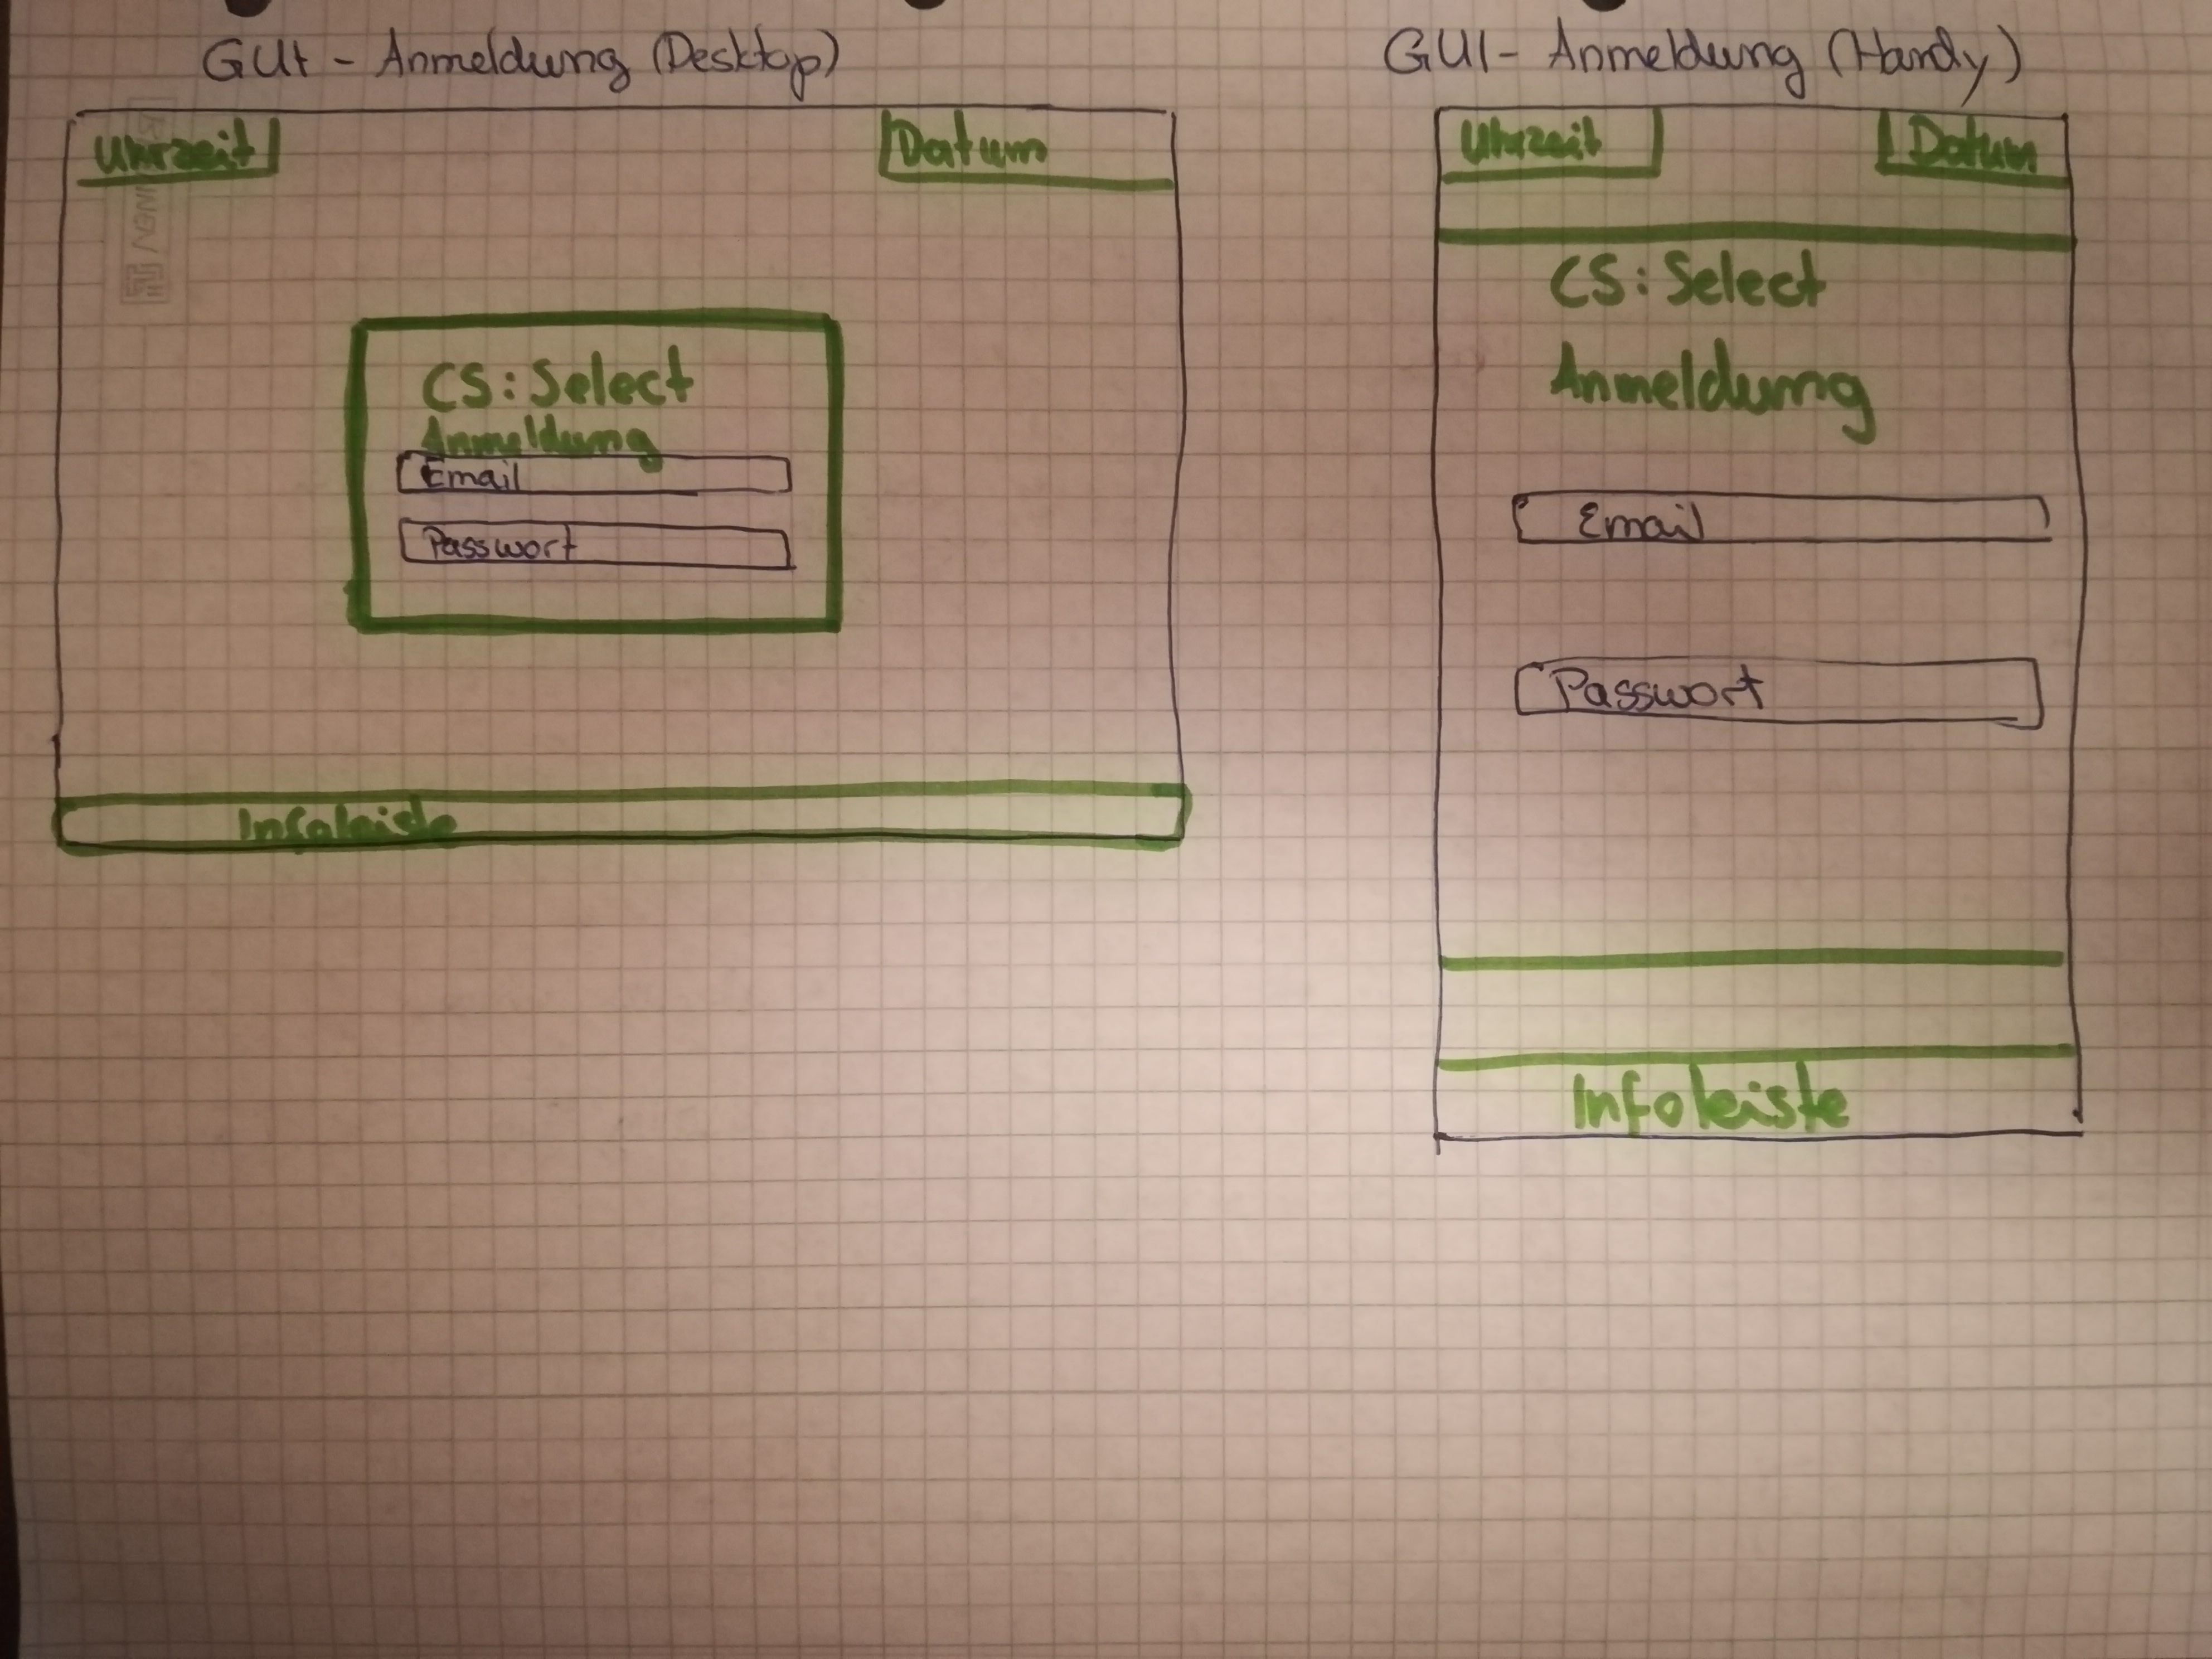 GUI - Anmeldung (Desktop)
Uhrzeit
Datum
CS: Select
Anmeldung
Email
Passwort
Infoleiste
GUI - Anmeldung (Handy)
Uhrzeit
Datum
CS: Select
Anmeldung
Email
Passwort
Infoleiste